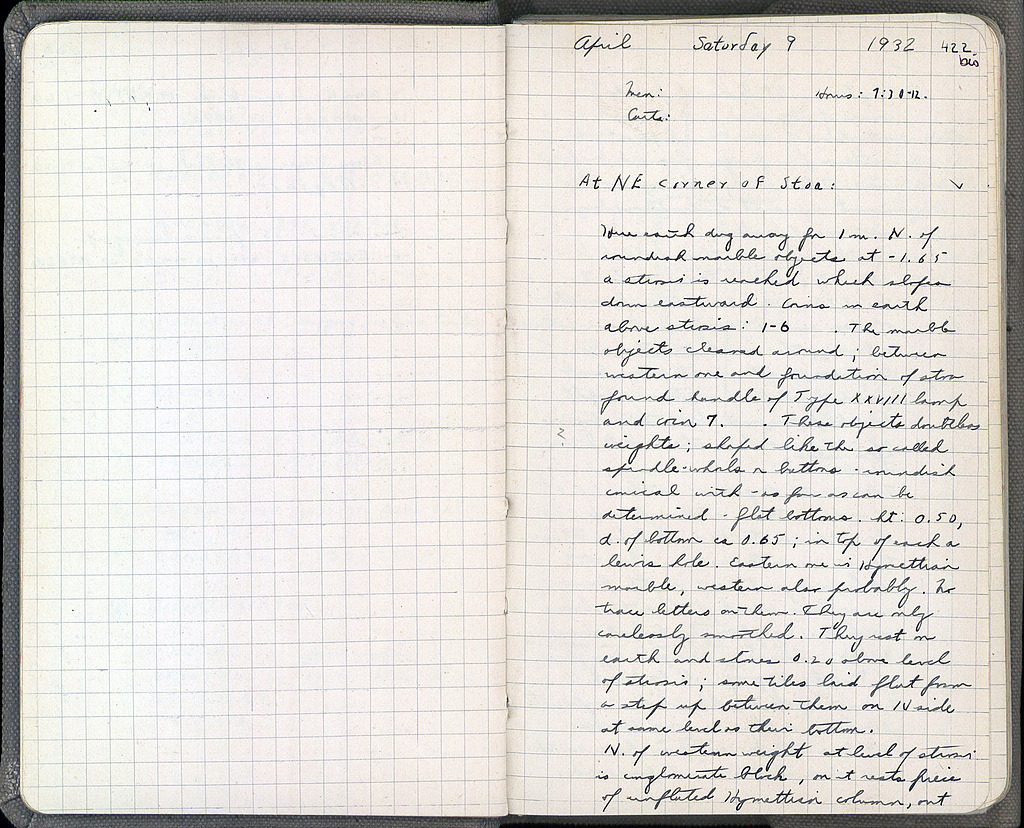 April Saturday 9 1932 422
bis
Men: Hours: 7:30-12.
Carts:
At NE corner of Stoa:
Here earth dug away for 1 m. N. of
roundish marble objects at -1.65
a strosis is reached which slopes
down eastward. Coins in earth
above strosis: 1-6 . The marble
objects cleared around; between
western one and foundation of stoa
found handle of Type XXVIII lamp
and coin 7. . These objects doubtless
weights; shaped like the so called
spindle-whorls or buttons - roundish
conical with - as far as can be
determined - flat bottoms. ht. 0.50,
d. of bottom ca 0.65; in top of each a
lewis hole. Eastern one is Hymettian
marble, western also probably. No
trace letters on them. They are only
carelessly smoothed. They rest on
earth and stones 0.20 above level
of strosis; some tiles laid flat form
a step up between them on N side
at same level as their bottom.
N. of western weight at level of strosis
is conglomerate block, on it rests piece
of unfluted Hymettian column, out